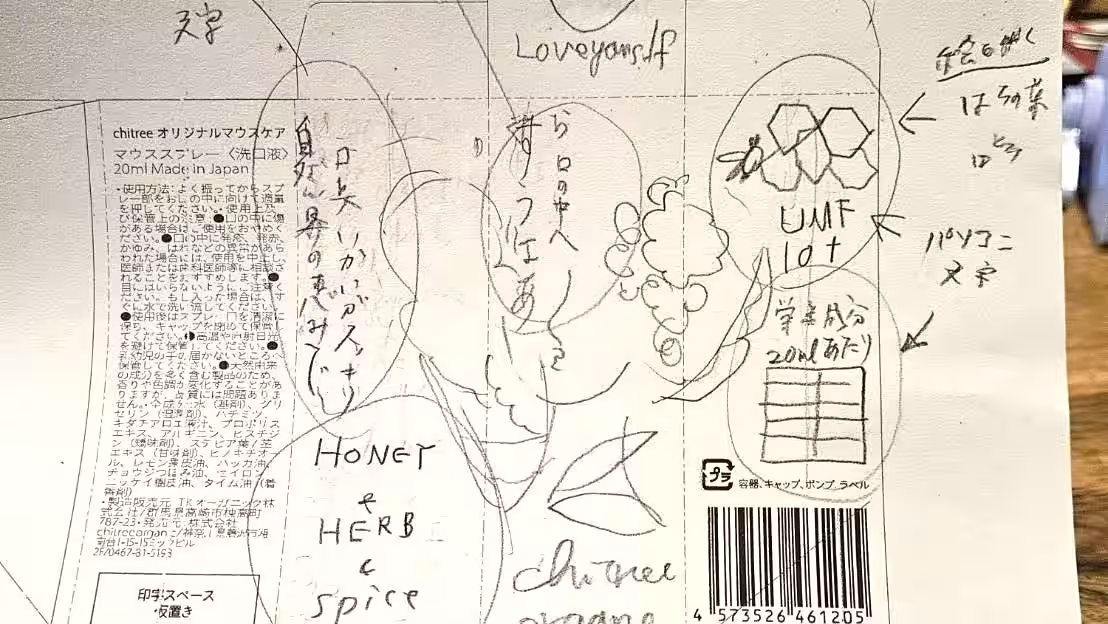 文字
Loveyourself
絵を描く
はちの巣
はち
パソコン
文字
chitree オリジナルマウスケア
マウススプレー〈洗口液〉
20ml Made in Japan
・使用方法：よく振ってからスプ
レー部をお口の中に向けて適量
を押してください。・使用上及
び保管上の注意：●口の中に傷
がある場合はご使用をおやめく
ださい。●口の中に発疹、発赤、
かゆみ、はれなどの異常があら
われた場合には、使用を中止し、
医師または歯科医師等に相談さ
れることをおすすめします。●
目にはいらないようにご注意く
ださい。もし入った場合は、す
ぐに水で洗い流してください。
●使用後はスプレー口を清潔に
保ち、キャップを閉めて保管し
てください。●高温や直射日光
を避けて保管してください。●
乳幼児の手の届かないところへ
保管してください。●天然由来
の成分を多く含む製品のため、
香りや色調が変化することがあ
りますが、品質には問題ありま
せん。・全成分：水（基剤）、グリ
セリン（湿潤剤）、ハチミツ、
キダチアロエ液汁、プロポリス
エキス、アルギニン、ヒスチジ
ン（矯味剤）、ステビア葉/茎
エキス（甘味剤）、ヒノキチオー
ル、レモン果皮油、ハッカ油、
チョウジつぼみ油、セイロン
ニッケイ樹皮油、タイム油（着
香剤）
・製造販売元 TKオーガニック株
式会社/群馬県高崎市棟高町
787-23・発売元 株式会社
chitreeorganic/神奈川県
前台1-15-15ミックビル
2F/0467-81-5193
印字スペース
仮置き
自然界の恵み
口臭
スッキリ
口の中へ
HONEY
+
HERB
&
spice
UMF
10+
成分
20mlあたり
プラ
容器、キャップ、ポンプ、ラベル
4 573526 461205